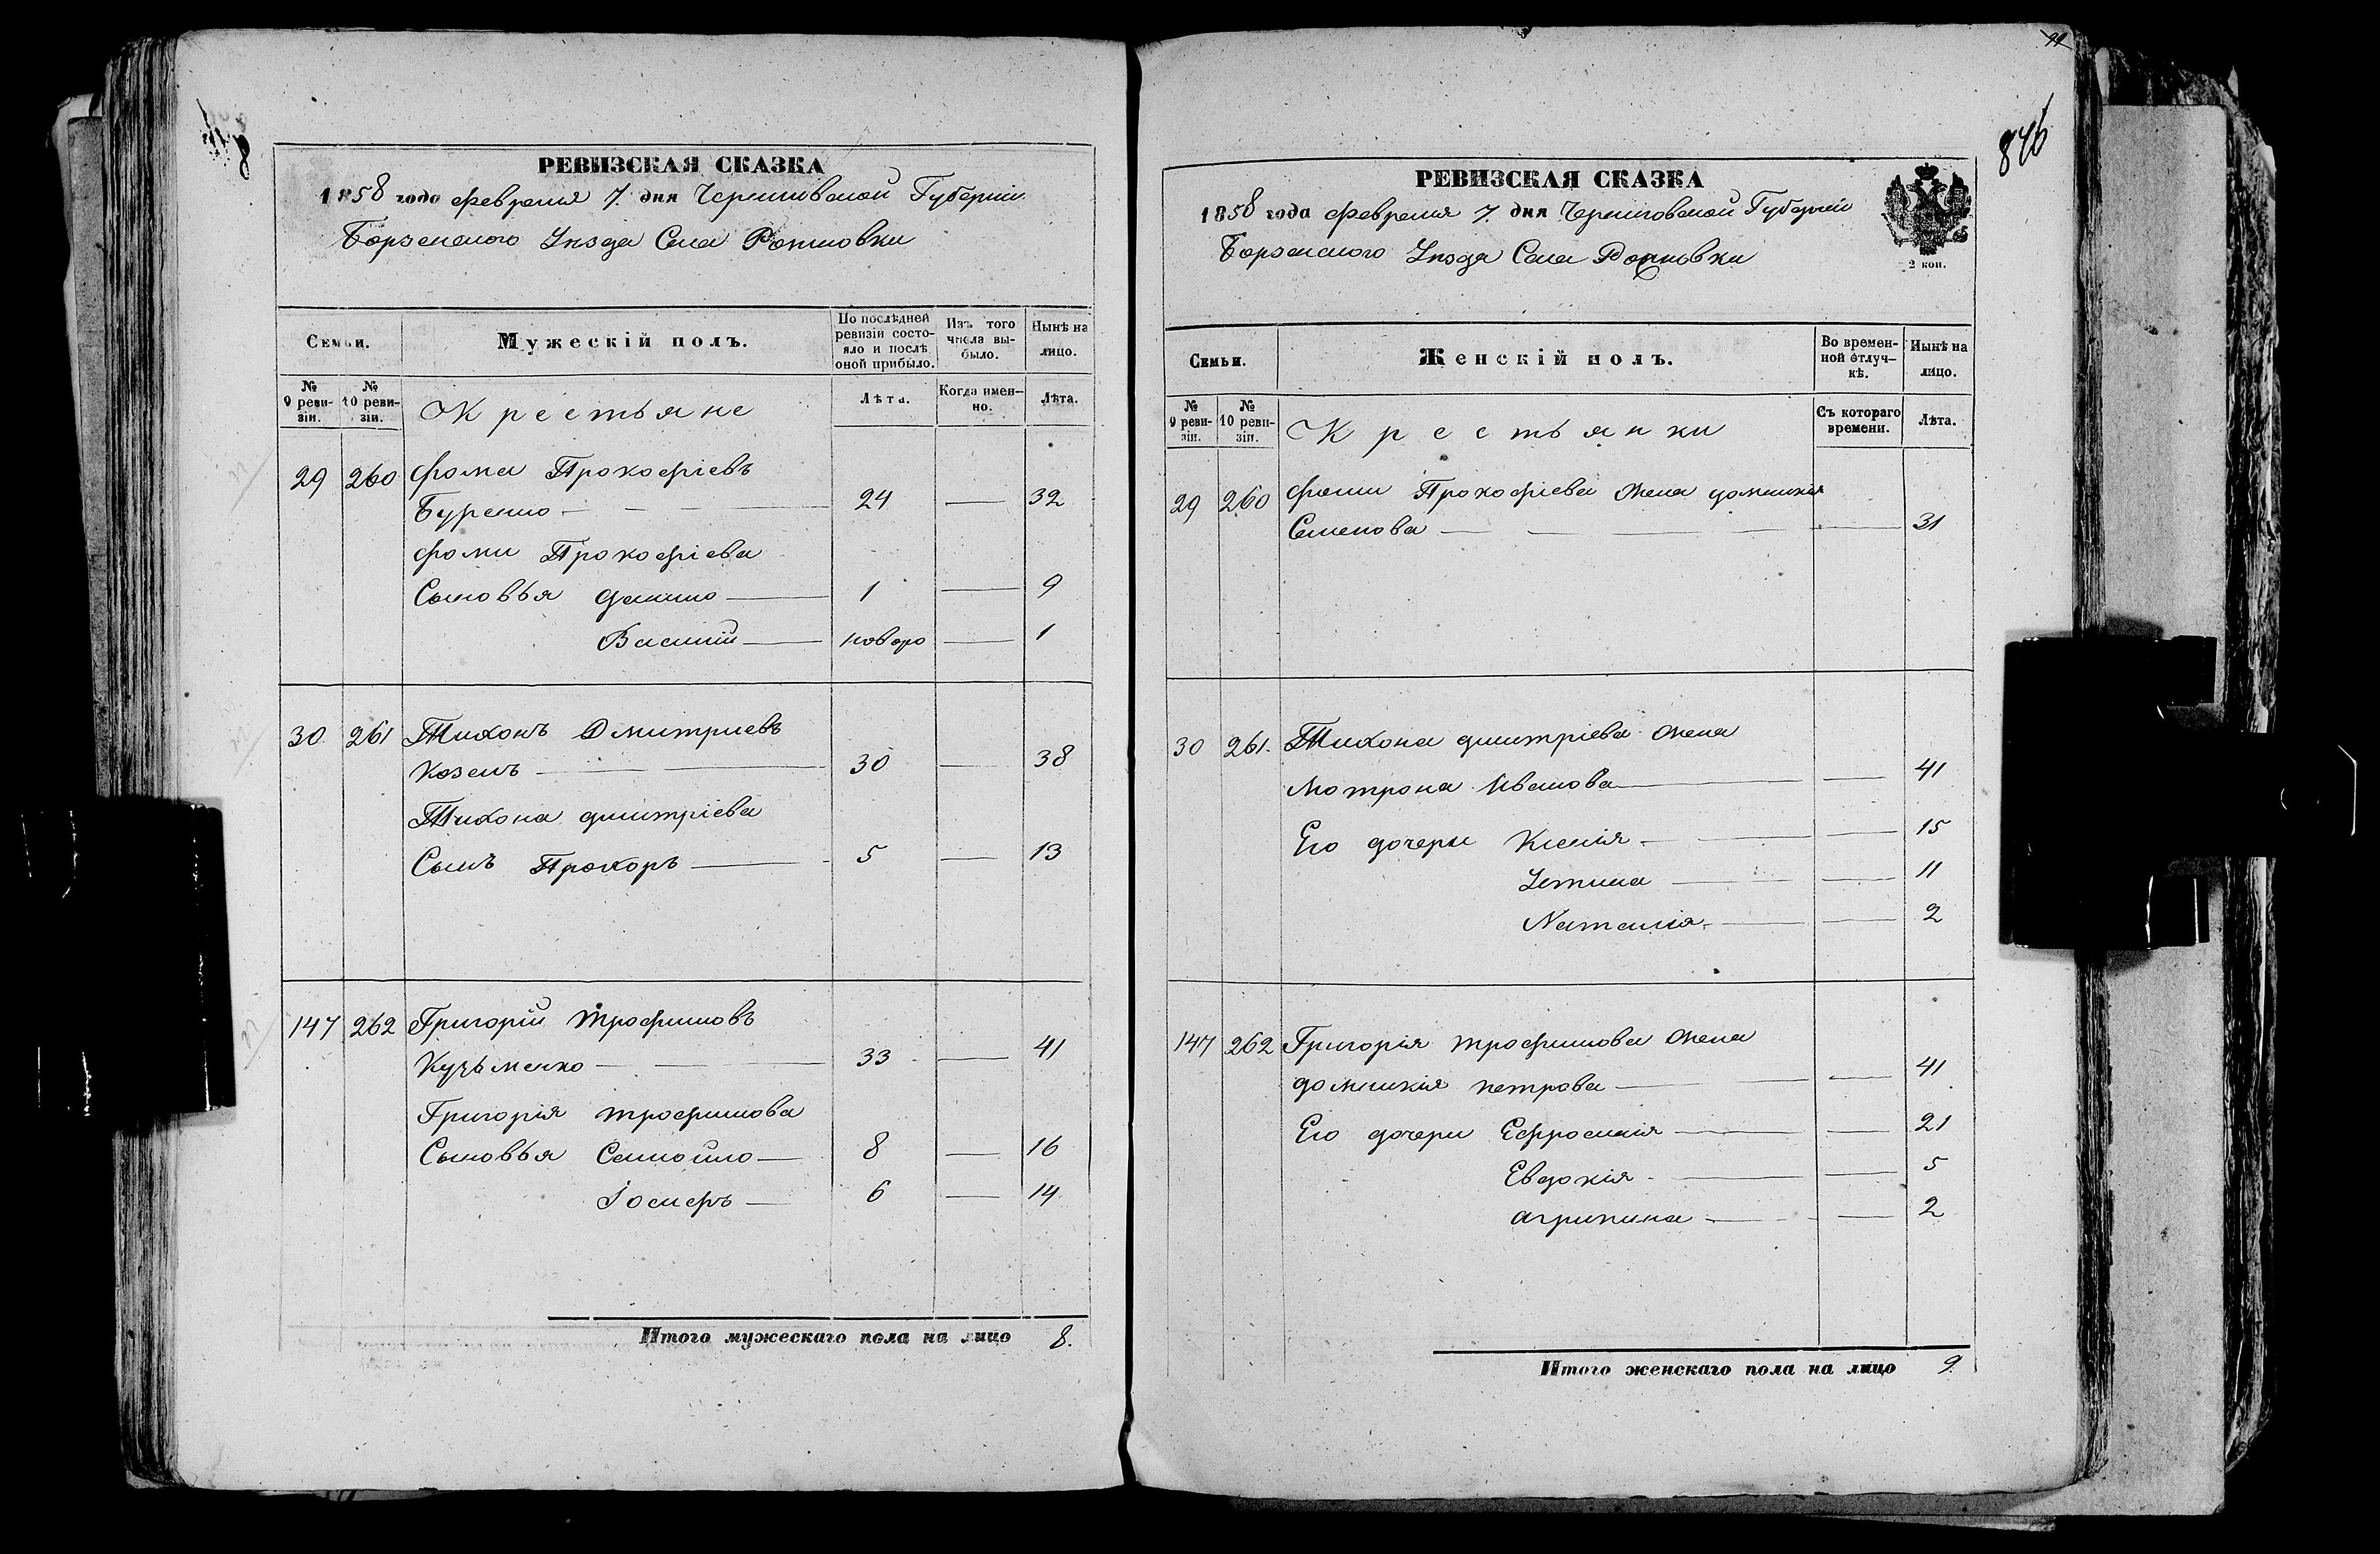 РЕВИЗСКАЯ СКАЗКА
1858 года февраля 7. дня Черниговской Губерніи
Борзенского Уезда Села
Семьи.
Мужескій полъ.
По послѣдней ревизіи состо-
яло и послѣ
оной прибыло.
Изъ того
числа вы-
было.
Нынѣ на
лицо.
№
9 реви-
зіи.
№
10 реви-
зіи.
Крестьяне
Лѣта.
Когда имен-
но.
Лѣта.
29 260 Фома Прокофіевъ
Буренко 24 32
Фомы Прокофіева
Сыновья Данило 1 9
Василій новоро 1
30 261 Тихонъ Дмитриевъ
Козелъ 30 38
Тихона Дмитріева
Сынъ Прохоръ 5 13
147 262 Григорій Трофимовъ
Кузьменко 33 41
Григорія Трофимова
Сыновья Самойло 8 16
Іосифъ 6 14
Итого мужескаго пола на лицо 8.
846
РЕВИЗСКАЯ СКАЗКА
1858 года февраля 7. дня Черниговской Губерніи
Борзенского Уезда Села
2 коп.
Семьи.
Женскій полъ.
Во времен-
ной отлуч-
кѣ.
Нынѣ на
лицо.
№
9 реви-
зіи.
№
10 реви-
зіи.
Крестьянки
Съ котораго
времени.
Лѣта.
29 260 Фомы Прокофіева жена Домникія
Семенова 31
30 261. Тихона Дмитріева жена
Мотрона Иванова 41
Его дочери Ксенія 15
Устина 11
Наталія 2
147 262 Григорія Трофимова жена
Домникія Петрова 41
Его дочери Ефросинія 21
Евдокія 5
Агрипина 2
Итого женскаго пола на лицо 9.